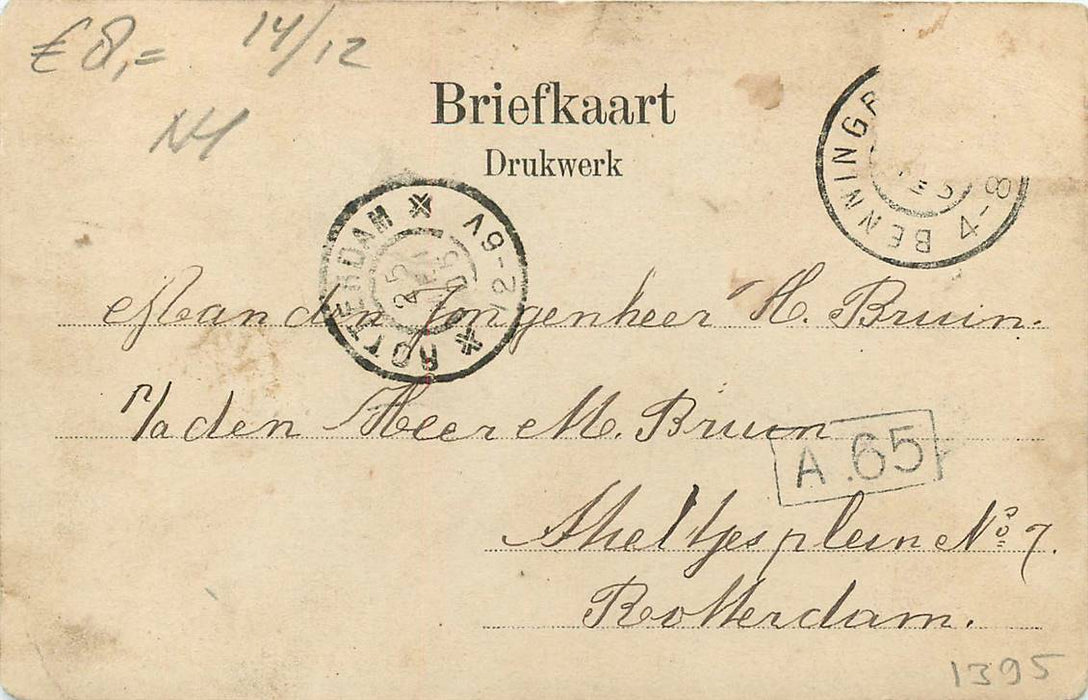 €8,= 14/12
N4
Briefkaart
Drukwerk
BENNINGB 4-8
ROTTERDAM 9-12V
25 FEB 05
Aan den Jongenheer H. Bruin.
p/a den Heer M. Bruin
A.65
Stieltjesplein No 7.
Rotterdam.
1395